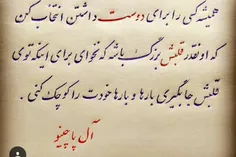 همیشه کسی را برای دوست داشتن انتخاب کن
که اونقدر قلبش بزرگ باشه که نخوای برای اینکه توی
قلبش جا بگیری بارها و بارها خودت را کوچک کنی.
آل پاچینو